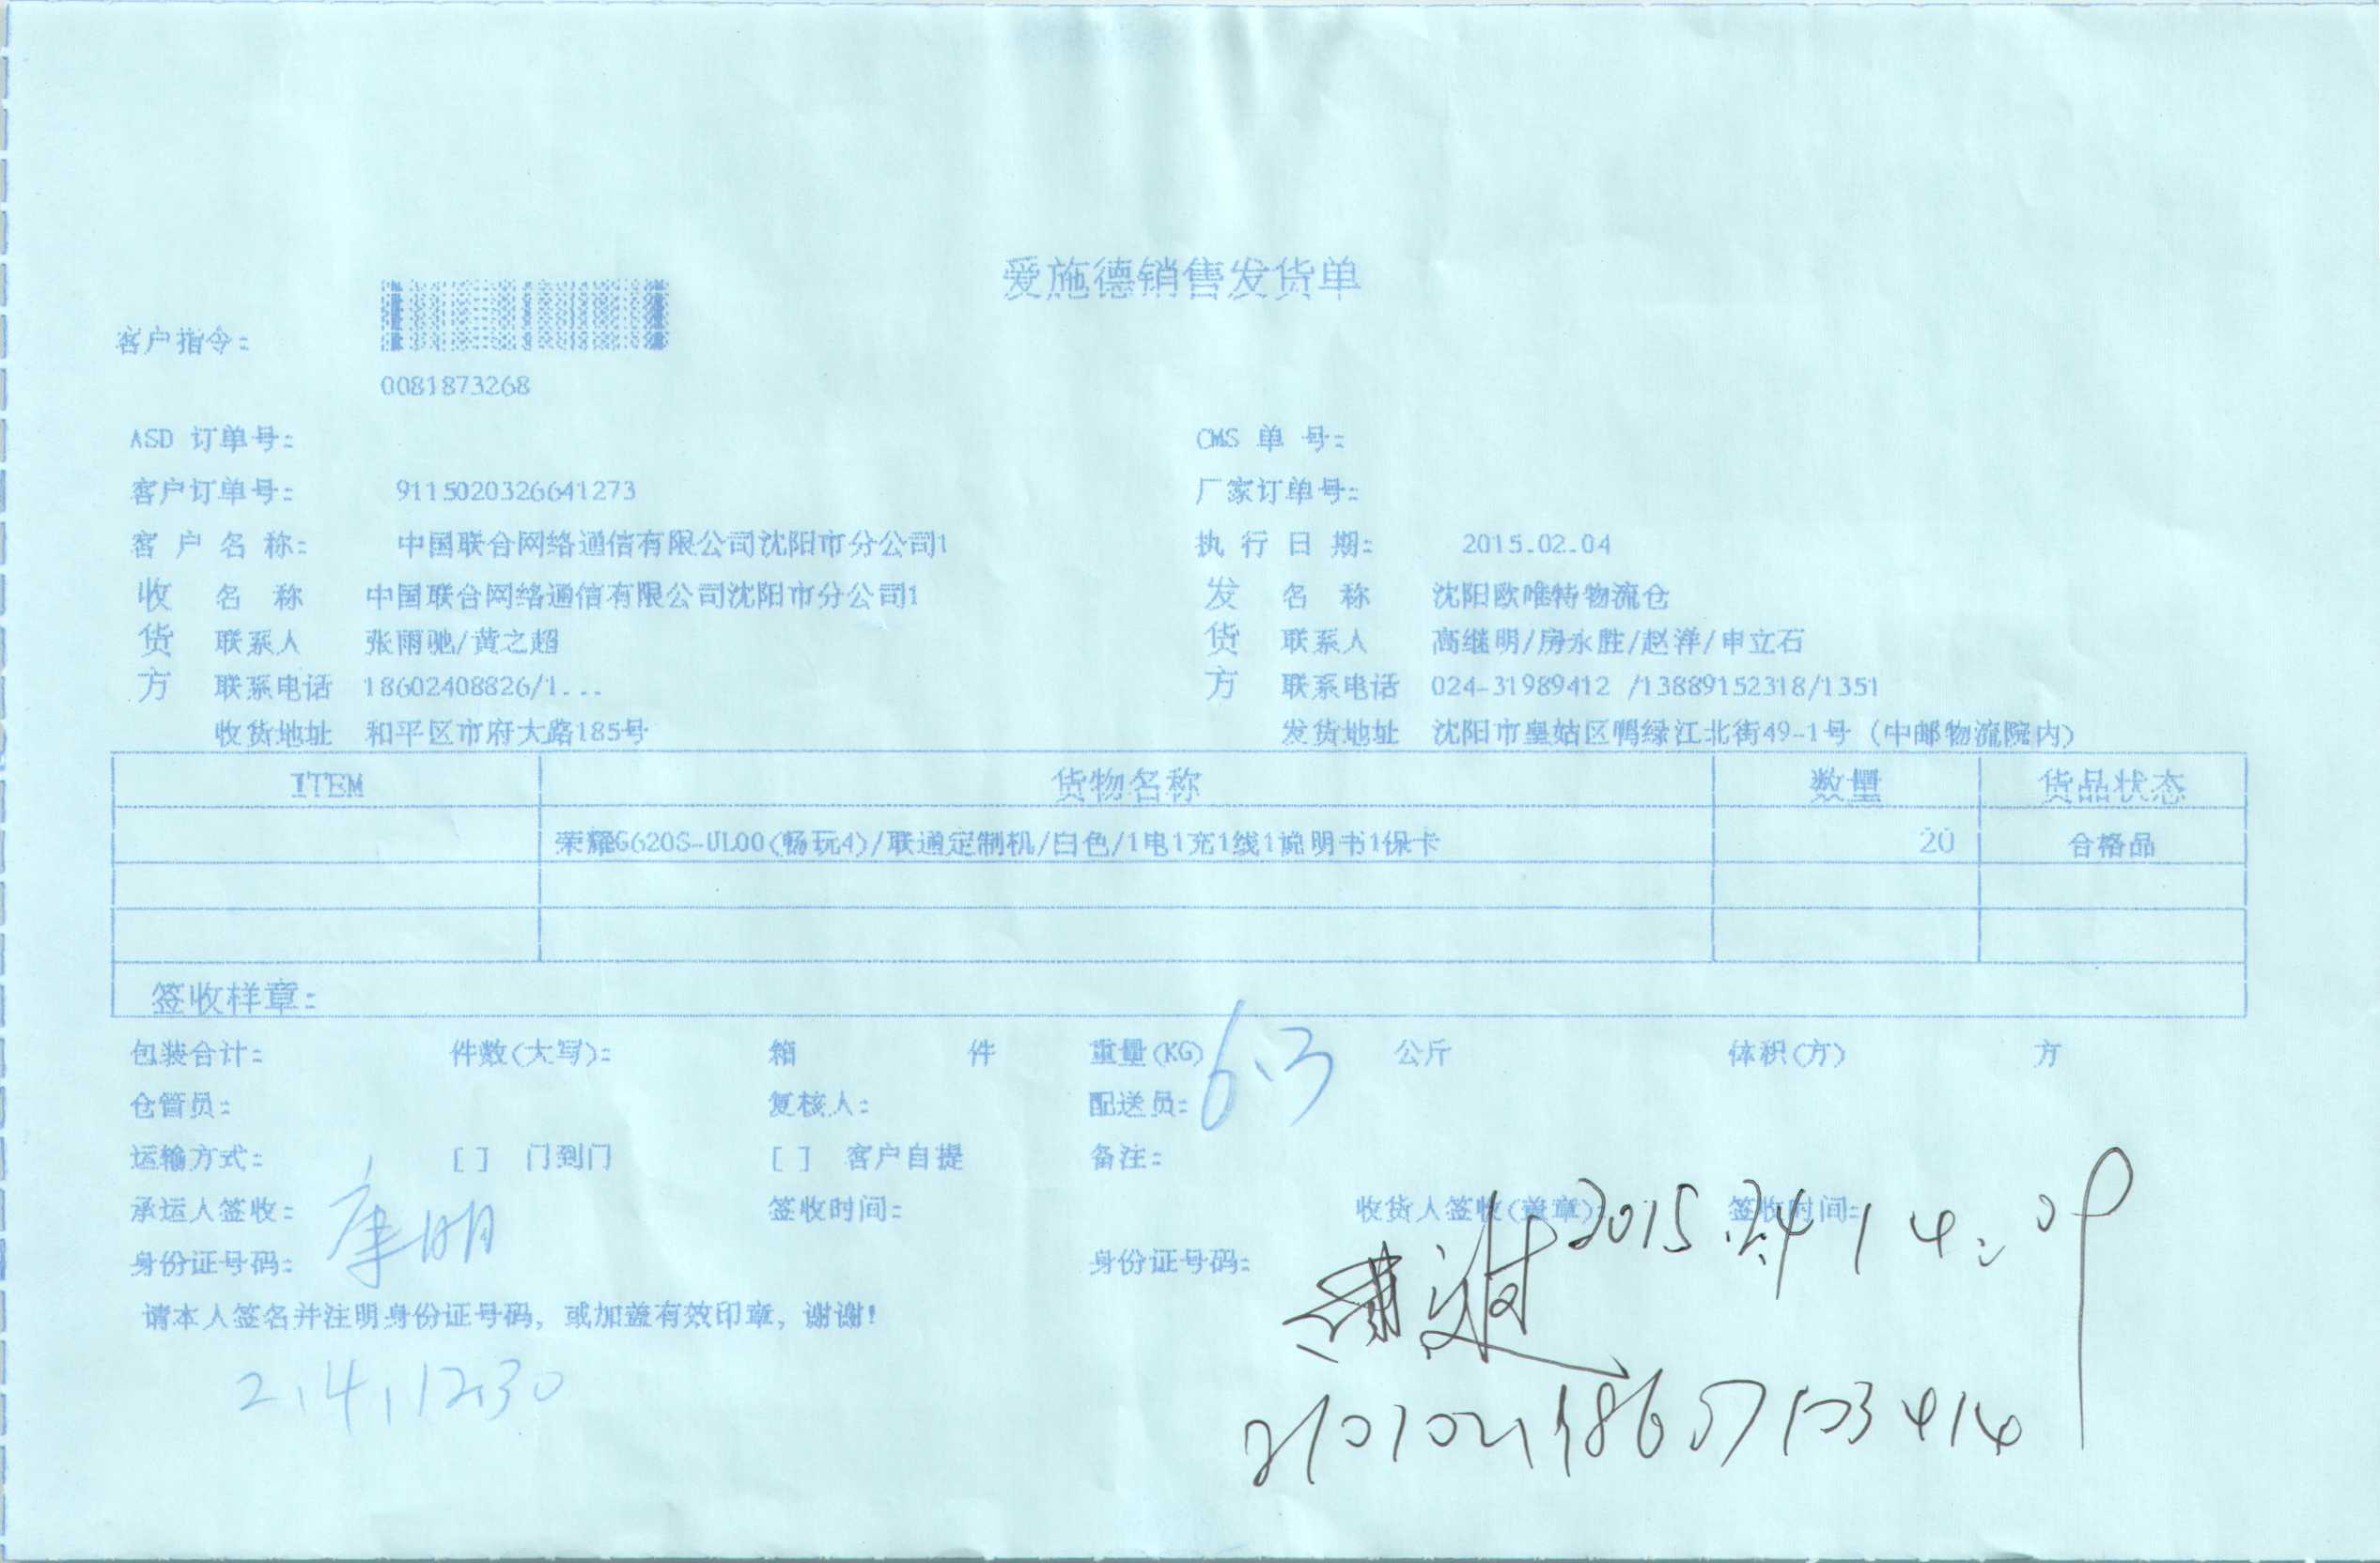 爱施德销售发货单
客户指令:
0081873268
ASD 订单号: CMS 单 号:
客户订单号: 9115020326641273 厂家订单号:
客 户 名 称: 中国联合网络通信有限公司沈阳市分公司1 执 行 日 期: 2015.02.04
收 名 称 中国联合网络通信有限公司沈阳市分公司1 发 名 称 沈阳欧唯特物流仓
货 联系人 张雨驰/黄之超 货 联系人 高继明/房永胜/赵洋/申立石
方 联系电话 18602408826/1... 方 联系电话 024-31989412 /13889152318/1351
收货地址 和平区市府大路185号 发货地址 沈阳市皇姑区鸭绿江北街49-1号（中邮物流院内）
ITEM 货物名称 数量 货品状态
荣耀G620S-UL00(畅玩4)/联通定制机/白色/1电1充1线1说明书1保卡 20 合格品
签收样章:
包装合计: 件数(大写): 箱 件 重量(KG) 6.3 公斤 体积(方) 方
仓管员: 复核人: 配送员:
运输方式: [ ] 门到门 [ ] 客户自提 备注:
承运人签收: 签收时间: 收货人签收(盖章) 2015.2.4 签收时间: 14:09
身份证号码: 身份证号码:
请本人签名并注明身份证号码，或加盖有效印章，谢谢!
2.4.12.30